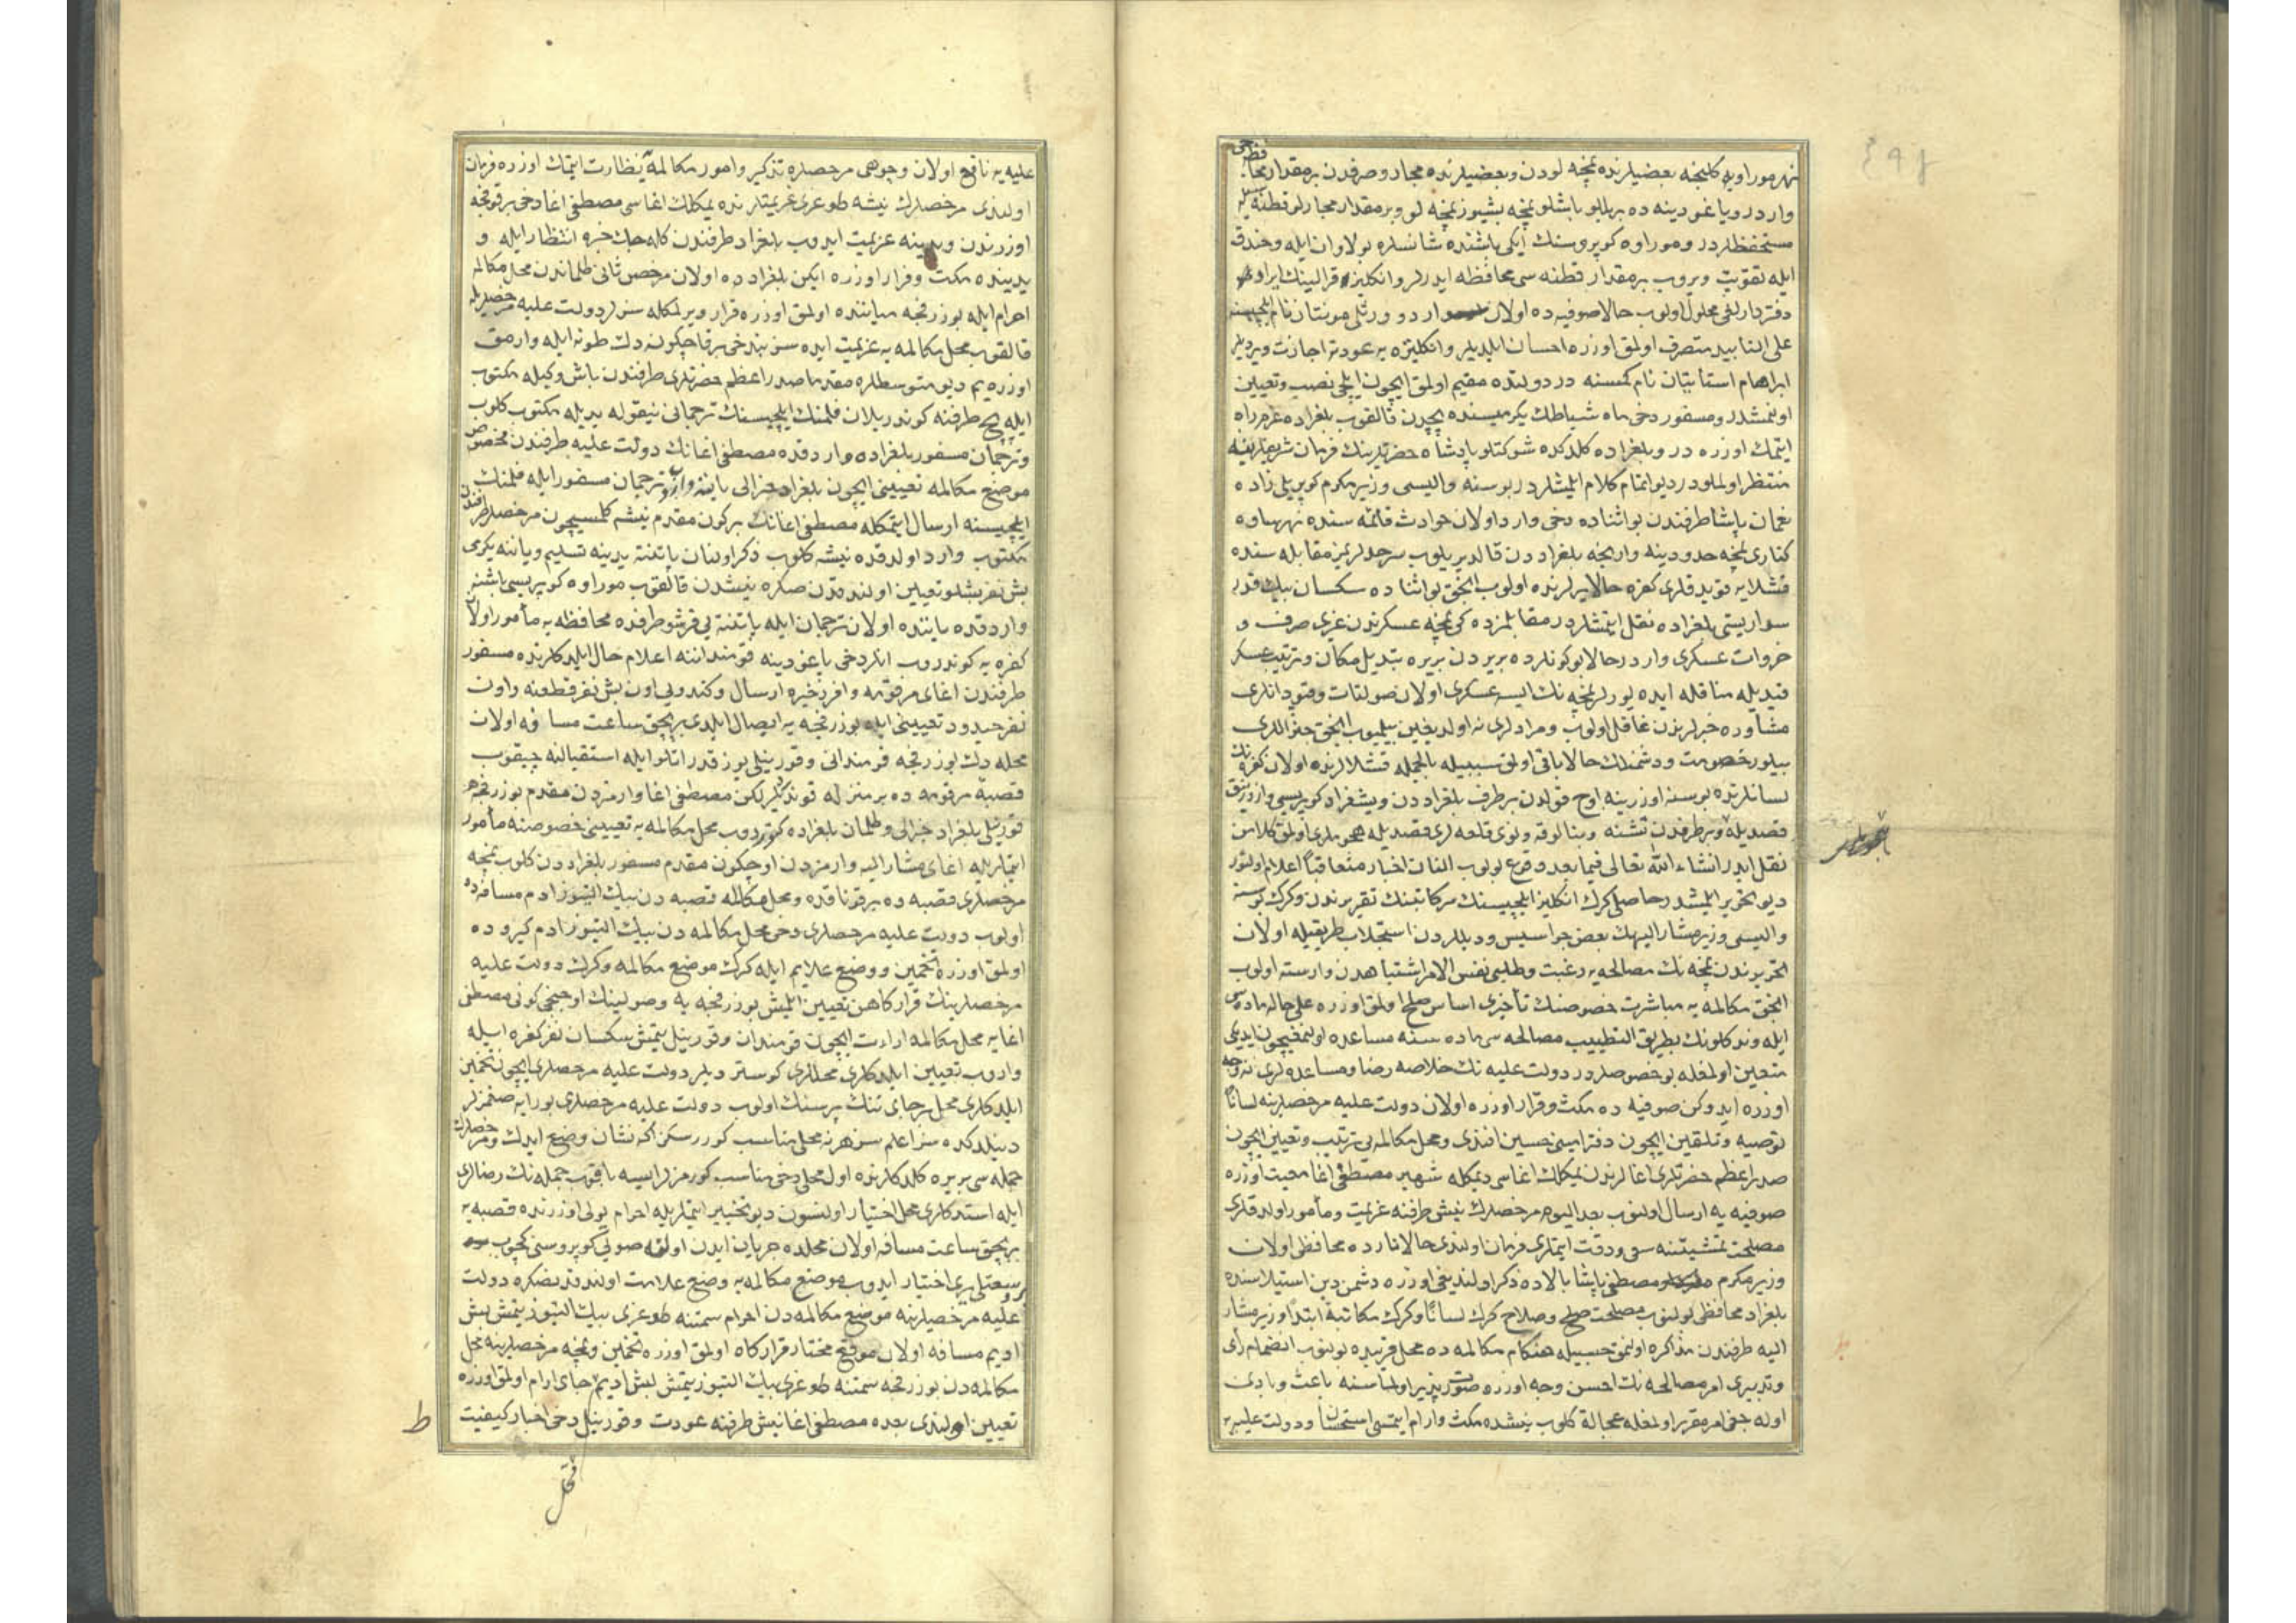 نهر موراوه یه کلنجه بعضیلرنده نمچه لودن و بعضیلرنده مجار و صرفدن بر مقدار محافظه جی
واردر و یاغودینه ده بر بلابو باشلو نمچه بشیوز نمچه لو و بر مقدار مجارلو قطنه سیله
مستحفظلردر و موراوه کوپروسنك ایکی باشنده شانسلره بولاوان ایله و خندق
ایله تقویت ویروب بر مقدار قطنه سی محافظه ایدرلر و انکلیز قرالینك ایراد
دفتردارلغی محلول اولوب حالا صوفیه ده اولان اردو ورتلی مونتان نام ایلچیسنه
علی التأبید متصرف اولمق اوزره احسان ایلدیلر و انکلتره یه عودته اجازت ویردیلر
ابراهام استانیان نام کمسنه در دولتده مقیم اولمق ایچون ایلچی نصب و تعیین
اولنمشدر و مسفور دخی ماه شباطك یکرمیسنده بچدن قالقوب بلغراده عزم راه
ایتمك اوزره در و بلغراده کلدکده شوکتلو پادشاه حضرتلرینك فرمان شریفلرینه
منتظر اولملودر دیو اتمام کلام ایلمشلردر بوسنه والیسی وزیر مکرم کوپریلی زاده
نعمان پاشا طرفندن بو اثناده دخی وارد اولان حوادث قائمه سنده نهر ساوه
کناری نمچه حدودینه وارنجه بلغراددن قالدیریلوب سرحدلریمز مقابله سنده
قشلایه قویدقلری کفره حالا یرلرنده اولوب انجق بو اثناده سکسان بیك قدر
سواریسنی بلغراده نقل ایتمشلردر مقابلمزده کی نمچه عسکرندن غیری صرف و
خروات عسکری واردر حالا بو کونلرده بریردن بریره تبدیل مکان و ترتیب عسکر
قیدیله مناقله ایده یورلر نمچه نك ایسه عسکری اولان صولتات و قپودانلری
مشاوره خبرلرندن غافل اولوب و مرادلری نه اولدیغین بیلمیوب انجق جنراللری
بیلور خصومت و دشمنلك حالا باقی اولمق سببیله بالجمله قشلالرنده اولان کفره نك
لسانلرنده بوسنه اوزرینه اوچ قولدن بر طرف بلغراددن و یشغراد کوپریسی و ازورنیق
قصدیله و بر طرفدن تشنه و بنالوقه و نوی قلعه لری قصدیله هجوملری اولمق کلامن
نقل ایدر انشاء الله تعالی فیما بعد وقوع بولوب الفات اخبار متعاقبا اعلام اولنور
دیو تحریر ایلمشدر حاصلی کرك انکلیز ایلچیسنك سرکاتبنك تقریرندن و کرك بوسنه
والیسی وزیر مشار الیهك بعض جواسیس و دیللردن استجلاب طریقیله اولان
تحریرندن نمچه نك مصالحه یه رغبت و طلبی نفس الامر اشتباهدن وارسته اولوب
انجق مکالمه یه مباشرت خصوصنك تأخیری اساس صلح اولمق اوزره علی حاله ماده سی
ایله وندکلونك بطریق التطبیب مصالحه سی ماده سنه مساعده اولنمدیغیچون ایدوکی
متعین اولمغله بو خصوصلردر دولت علیه نك خلاصه رضا و مساعده لری نه وجه
اوزره ایدوکن صوفیه ده مکث و قرار اوزره اولان دولت علیه مرخصلرینه لسانا
توصیه و تلقین ایچون دفتر امینی حسین افندی و محل مکالمه یی ترتیب و تعیین ایچون
صدر اعظم حضرتلری اغالرندن یمکلك اغاسی دیمکله شهیر مصطفی اغا معیت اوزره
صوفیه یه ارسال اولنوب بعد الیوم مرخصلرك نیش طرفنه عزیمت و مأمور اولدقلری
مصلحت تمشیتنه سعی و دقت ایتملری فرمان اولندی حالا انارده محافظی اولان
وزیر مکرم مصطفی پاشا بالاده ذکر اولندیغی اوزره دشمن دین استیلاسنده
بلغراد محافظی بولنوب مصلحت صلح و صلاح کرك لسانا و کرك مکاتبة ابتدا وزیر مشار
الیه طرفندن مذاکره اولنمق حسبیله هنکام مکالمه ده محل قریبده بولنوب انضمام رأی
و تدبیری امر مصالحه نك احسن وجه اوزره صورت پذیر اولماسنه باعث و بادی
اوله جغی امر مقرر اولمغله عجالة کلوب نیشده مکث و ارام ایتمسی استحسان و دولت علیه یه
تجویزلر
علیه یه نافع اولان وجوهی مرخصلره تذکیر و امور مکالمه یه نظارت ایتمك اوزره فرمان
اولندی مرخصلرك نیشه طوغری عزیمتلرنده یمکلك اغاسی مصطفی اغا دخی برقوفچه
اوزرندن ویدینه عزیمت ایدوب بلغراد طرفندن کله جك خبره انتظار ایله و
یدینده مکث و قرار اوزره ایکن بلغرادده اولان مرخص ثانی طلماندن محل مکالمه
اهرام ایله بوزرفچه میاننده اولمق اوزره قرار ویرلمکله سزلر دولت علیه مرخصلریله
قالقوب محل مکالمه یه عزیمت ایده سز بز دخی بر قاچ کونه دك طونه ایله وارمق
اوزره یم دیو متوسطلره مقدما صدر اعظم حضرتلری طرفندن باش وکیله مکتوب
ایله بچ طرفنه کوندریلان فلمنك ایلچیسنك ترجمانی نیقوله یدیله مکتوب کلوب
و ترجمان مسفور بلغراده وارد قده مصطفی اغانك دولت علیه طرفندن مخصوص
موضع مکالمه تعیینی ایچون بلغراد جنرالی یاننه واروب ترجمان مسفور ایله فلمنك
ایلچیسنه ارسال ایتمکله مصطفی اغانك بر کون مقدم نیشه کلمسیچون مرخصلر طرفندن
مکتوب وارد اولدقده نیشه کلوب ذکر اولنان پاتنته یدینه تسلیم و یاننه یکرمی
بش نفر بشلو تعیین اولندقدن صکره نیشدن قالقوب موراوه کوپریسی باشنه
وارد قده یاننده اولان ترجمان ایله پاتنته یی قرشو طرفده محافظه یه مأمور اولان
کفره یه کوندروب انلر دخی یاغودینه قومنداننه اعلام حال ایلدکلرنده مسفور
طرفندن اغای مرقومه وافر ذخیره ارسال و کندویی اون بش نفر قطنه و اون
نفر حیدود تعیینی ایله بوزرفچه یه ایصال ایلدی بر بچق ساعت مسافه اولان
محله دك بوزرفچه قومندانی و قورنیلی یوز قدر اتلو ایله استقبالنه چیقوب
قصبه مرقومه ده بر منزله قوندیلر لکن مصطفی اغا وارمزدن مقدم بوزرفچه
قورنیلی بلغراد جنرالی و طلمان بلغراده کوتروب محل مکالمه یه تعیینی خصوصنه مأمور
ایتملریله اغای مشار الیه وارمزدن اوچ کون مقدم مسفور بلغراددن کلوب نمچه
مرخصلری قصبه ده بر قوناقده و محل مکالمه قصبه دن بیك التیوز ادم مسافه ده
اولوب دولت علیه مرخصلری دخی محل مکالمه دن بیك التیوز ادم کیروده
اولمق اوزره تخمین و وضع علایم ایله کرك موضع مکالمه و کرك دولت علیه
مرخصلرینك قرارکاهن تعیین ایلمش بوزرفچه یه وصولینك اوچنجی کونی مصطفی
اغایه محل مکالمه اراءت ایچون قومندان و قورنیل یتمش سکسان نفر کفره ایله
واروب تعیین ایلدکلری محللری کوستردیلر دولت علیه مرخصلری ایچون تخمین
ایلدکلری محل بر جای تنك پر سنك اولوب دولت علیه مرخصلری بورایه صغمزلر
دینلدکده سز اعلم سز هر نه محلی مناسب کوررسکز اکه نشان وضع ایدك و مرخصلرك
جمله سی بریره کلدکلرنده اول محلی دخی مناسب کورمزلر ایسه باقوب جمله نك رضالری
ایله استدکلری محل اختیار اولنسون دیو تخییر ایتملریله اهرام یولی اوزرنده قصبه یه
بر بچق ساعت مسافه اولان محلده جریان ایدن اولو صولی کوپروسنی کچوب
وسعتلی یری اختیار ایدوب موضع مکالمه یه وضع علامت اولندقدنصکره دولت
علیه مرخصلرینه موضع مکالمه دن اهرام سمتنه طوغری بیك التیوز یتمش بش
ادیم مسافه اولان موقع مختار قرارکاه اولمق اوزره تخمین و نمچه مرخصلرینه محل
مکالمه دن بوزرفچه سمتنه طوغری بیك التیوز یتمش بش ادیم جای ارام اولمق اوزره
تعیین اولندی بعده مصطفی اغا نیش طرفنه عودت و قورنیل دخی اخبار کیفیت
ط